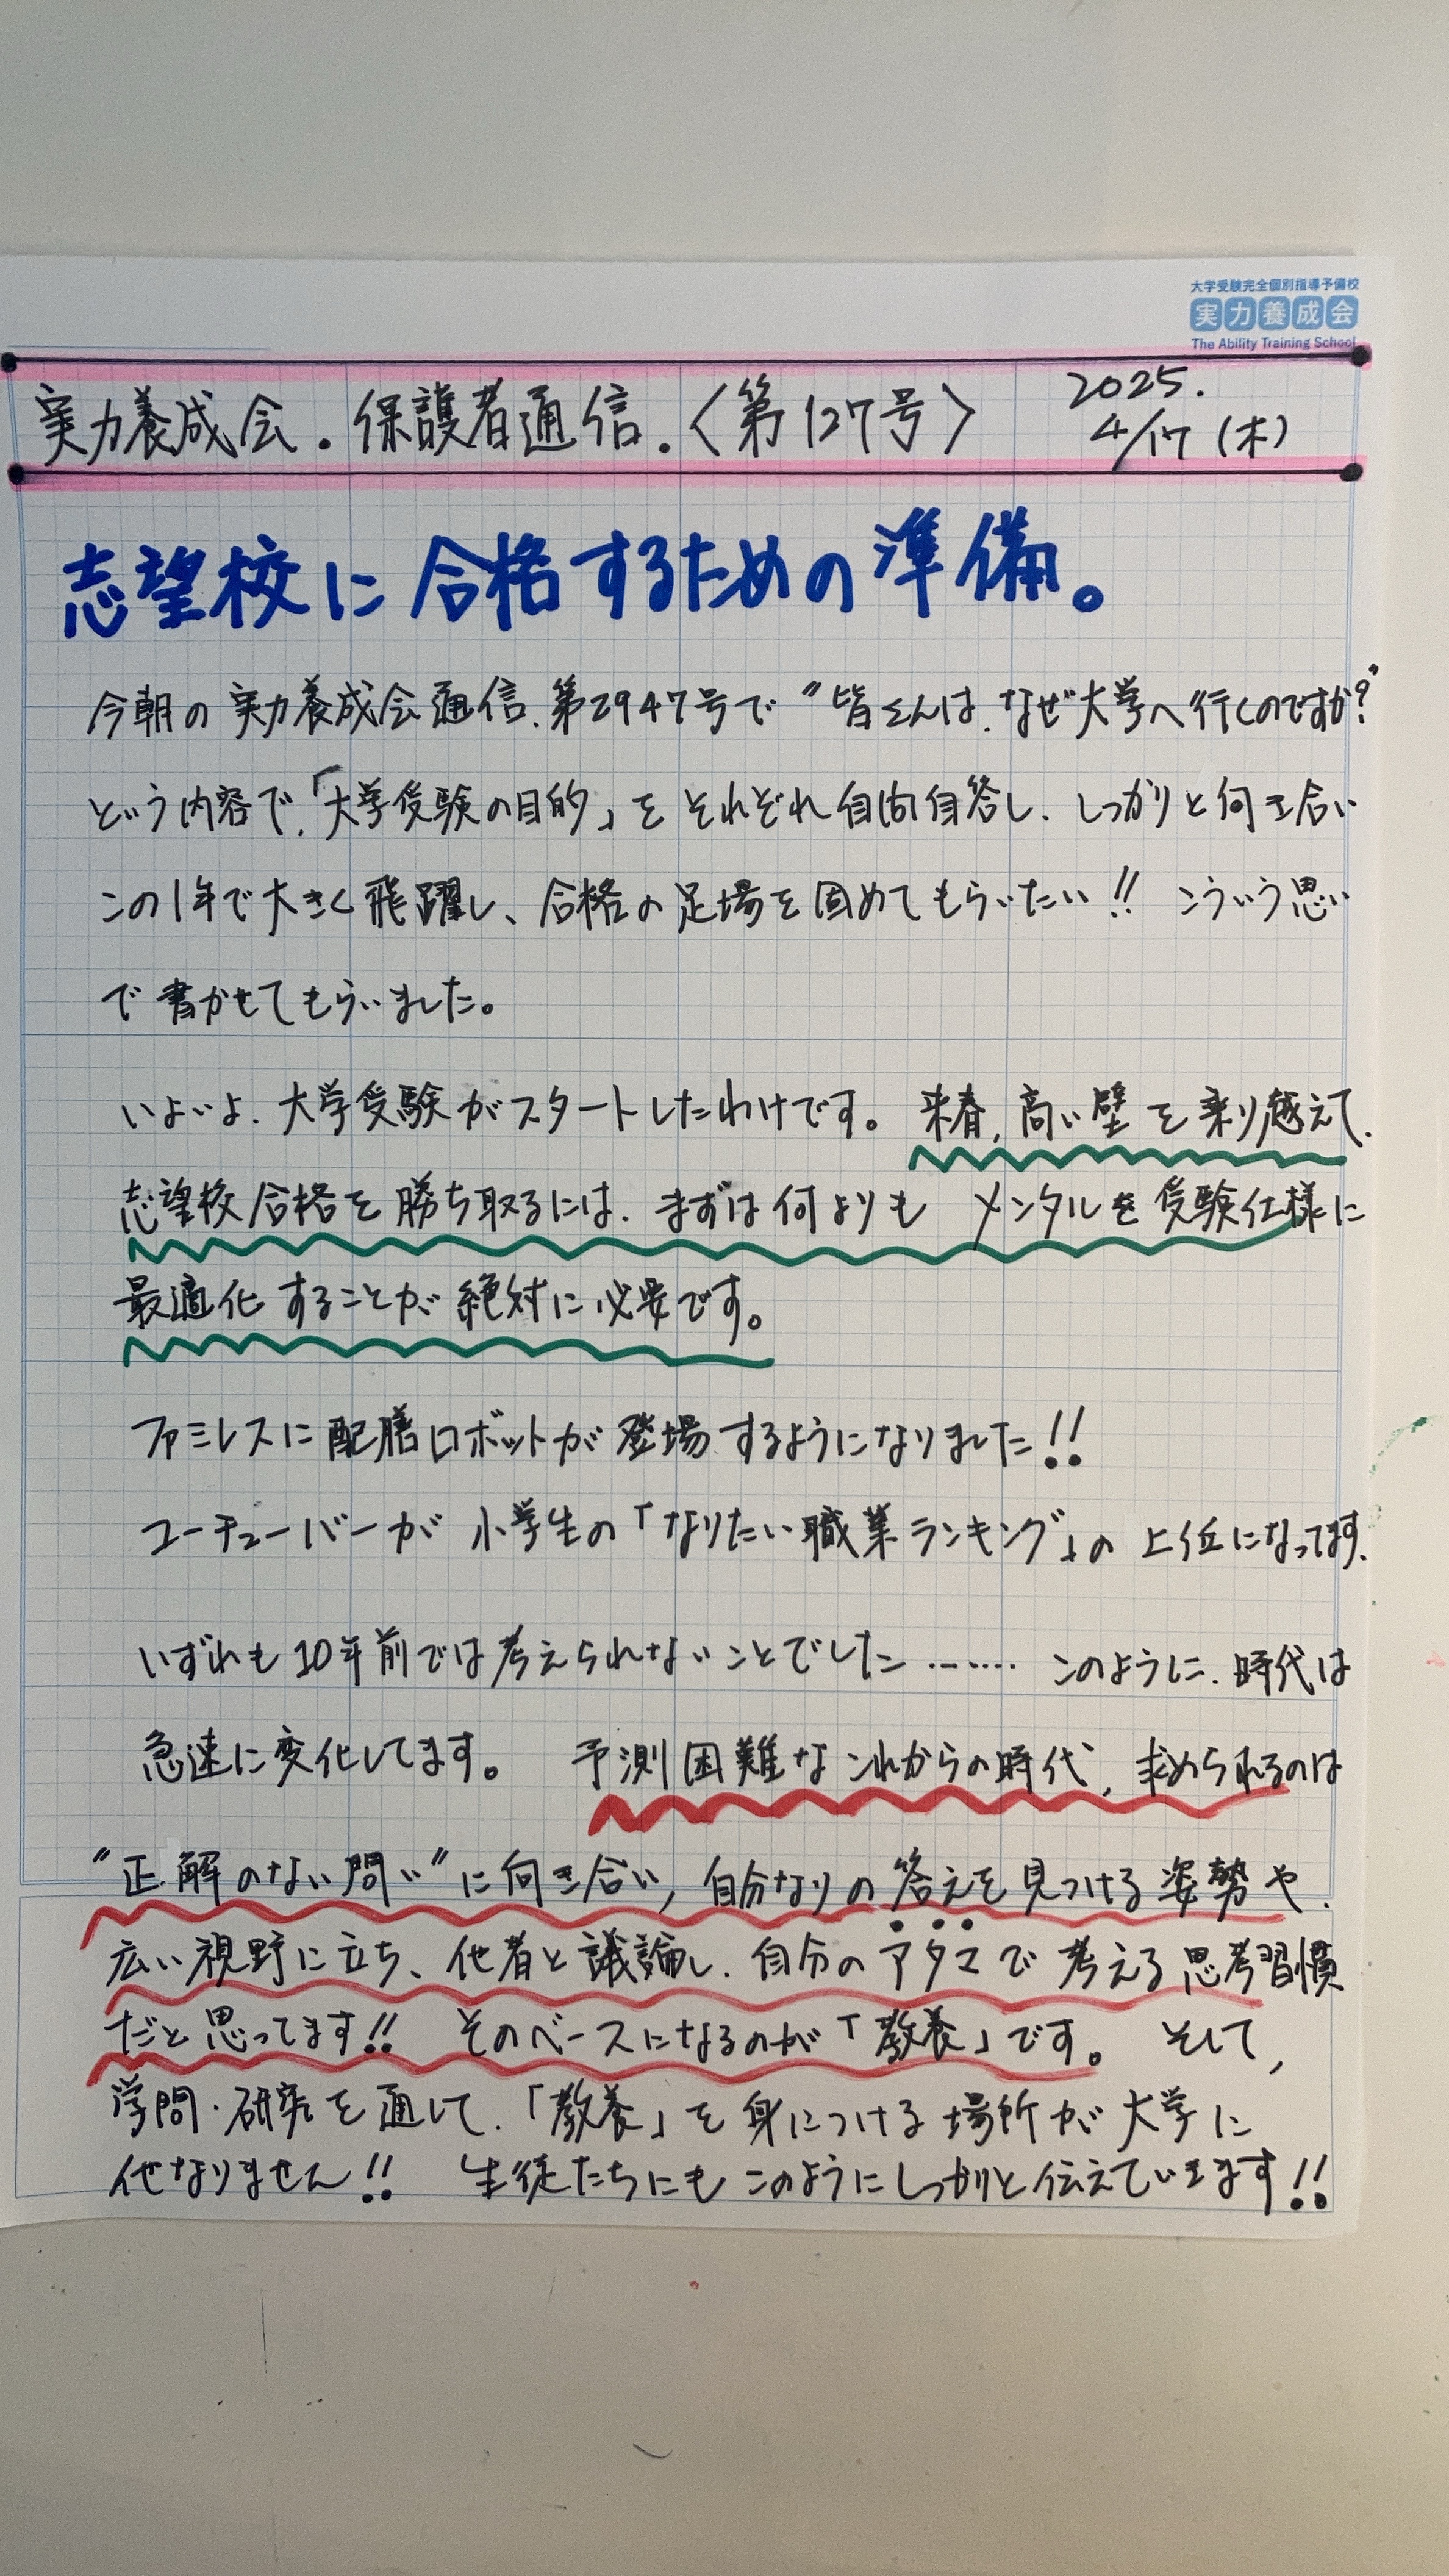 大学受験完全個別指導予備校
実力養成会
The Ability Training School
実力養成会.保護者通信.〈第127号〉
2025.
4/17(木)
志望校に合格するための準備。
今朝の実力養成会通信.第2947号で〝皆さんは、なぜ大学へ行くのですか?〟
という内容で、「大学受験の目的」をそれぞれ自問自答し、しっかりと向き合い
この1年で大きく飛躍し、合格の足場を固めてもらいたい!! こういう思い
で書かせてもらいました。
いよいよ、大学受験がスタートしたわけです。来春、高い壁を乗り越えて、
志望校合格を勝ち取るには、まずは何よりも メンタルを受験仕様に
最適化することが絶対に必要です。
ファミレスに配膳ロボットが登場するようになりました!!
ユーチューバーが小学生の「なりたい職業ランキング」の上位になってます、
いずれも10年前では考えられないことでした……. このように、時代は
急速に変化してます。 予測困難なこれからの時代、求められるのは
〝正解のない問い〟に向き合い、自分なりの答えを見つける姿勢や、
広い視野に立ち、他者と議論し、自分のアタマで考える思考習慣
だと思ってます!! そのベースになるのが「教養」です。 そして、
学問・研究を通して、「教養」を身につける場所が大学に
他なりません!! 生徒たちにもこのようにしっかりと伝えていきます!!